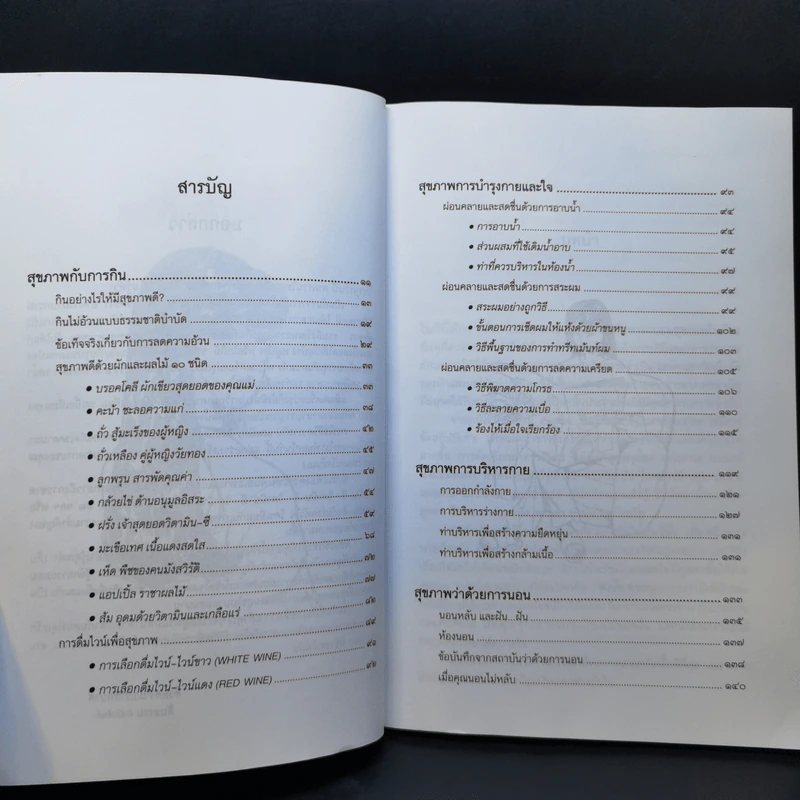 สารบัญ
สุขภาพกับการกิน ๑๑
กินอย่างไรให้มีสุขภาพดี? ๑๓
กินไม่อ้วนแบบธรรมชาติบำบัด ๑๙
ข้อเท็จจริงเกี่ยวกับการลดความอ้วน ๒๙
สุขภาพดีด้วยผักและผลไม้ ๑๐ ชนิด ๓๓
• บรอคโคลี ผักเขียวสุดยอดของคุณแม่ ๓๓
• คะน้า ชะลอความแก่ ๓๘
• ถั่ว สู้มะเร็งของผู้หญิง ๔๒
• ถั่วเหลือง คู่ผู้หญิงวัยทอง ๔๕
• ลูกพรุน สารพัดคุณค่า ๔๗
• กล้วยไข่ ต้านอนุมูลอิสระ ๕๔
• ฝรั่ง เจ้าสุดยอดวิตามิน-ซี ๕๙
• มะเขือเทศ เนื้อแดงสดใส ๖๘
• เห็ด พืชของคนมังสวิรัติ ๗๒
• แอปเปิ้ล ราชาผลไม้ ๗๗
• ส้ม อุดมด้วยวิตามินและเกลือแร่ ๘๒
การดื่มไวน์เพื่อสุขภาพ ๘๙
• การเลือกดื่มไวน์-ไวน์ขาว (WHITE WINE) ๙๑
• การเลือกดื่มไวน์-ไวน์แดง (RED WINE) ๙๒
สุขภาพการบำรุงกายและใจ ๙๓
ผ่อนคลายและสดชื่นด้วยการอาบน้ำ ๙๔
• การอาบน้ำ ๙๔
• ส่วนผสมที่ใช้เติมน้ำอาบ ๙๕
• ท่าที่ควรบริหารในห้องน้ำ ๙๗
ผ่อนคลายและสดชื่นด้วยการสระผม ๙๙
• สระผมอย่างถูกวิธี ๙๙
• ขั้นตอนการเช็ดผมให้แห้งด้วยผ้าขนหนู ๑๐๒
• วิธีพื้นฐานของการทำทรีทเม้นท์ผม ๑๐๓
ผ่อนคลายและสดชื่นด้วยการลดความเครียด ๑๐๕
• วิธีพิฆาตความโกรธ ๑๐๖
• วิธีละลายความเบื่อ ๑๑๐
• ร้องไห้เมื่อใจเรียกร้อง ๑๑๕
สุขภาพการบริหารกาย ๑๑๙
การออกกำลังกาย ๑๒๑
การบริหารร่างกาย ๑๒๗
ท่าบริหารเพื่อสร้างความยืดหยุ่น ๑๓๑
ท่าบริหารเพื่อสร้างกล้ามเนื้อ ๑๓๑
สุขภาพว่าด้วยการนอน ๑๓๓
นอนหลับ และฝัน...ฝัน ๑๓๕
ห้องนอน ๑๓๗
ข้อบันทึกจากสถาบันว่าด้วยการนอน ๑๓๘
เมื่อคุณนอนไม่หลับ ๑๔๐